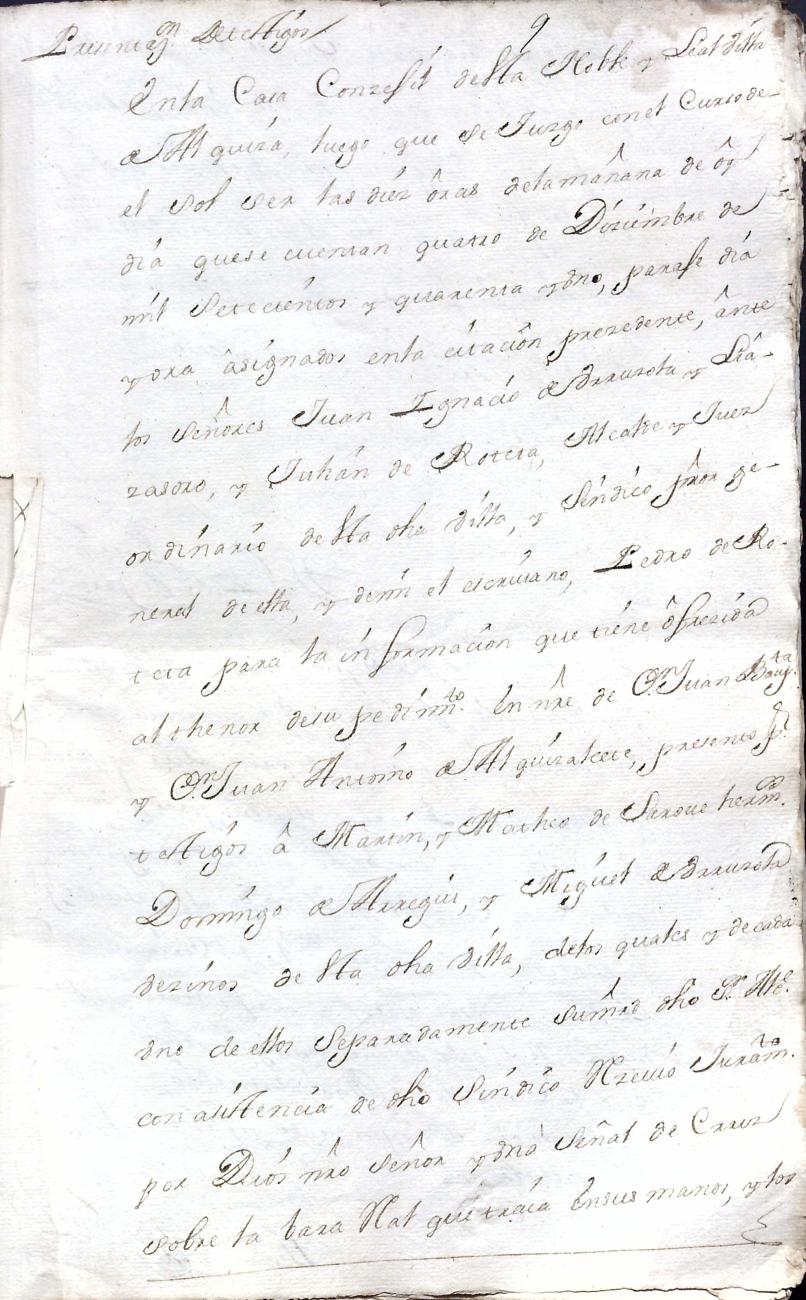 Presentaz.on De testigos
9
Enla Casa Conzegil desta Noble y Leal villa
de Alquiza, luego que se Juzgo conel Curso de
el Sol ser las diez ôras dela mañana de ôy
dia quese cuentan quatro de Diziembre de
mil Setecientos y quarenta y vno, parase dia
y ora âsignados enla citaciôn prezedente, ânte
los Señores Juan Ignacio de Yrrureta y Liâ-
zasoro, y Julian de Roteta, Alcalde y Juez
ordinario desta dha villa, y Sindico p.ror ge-
neral de ella, y demi el escriuano, Pedro de Ro-
teta para la informaciôn que tiene ôfrezida
al thenor desu pedim.to En nr̂e de D.n Juan Bap.ta
y D.n Juan Antonio de Alquizalete, presento p.r
testigos â Martin, y Matheo de Sarove herm.s
Domingo de Arregui, y Miguel de Yrrureta
vezinos desta dha villa, delos quales y de cada
vno de ellos Separadamente Sumrd dho S.r Alc.e
con asistencia de dho Sindico Rezeuio Juram.to
por Dios nrô Señor y vna Señal de Cruz
sobre la bara Real que traia Ensus manos, y los